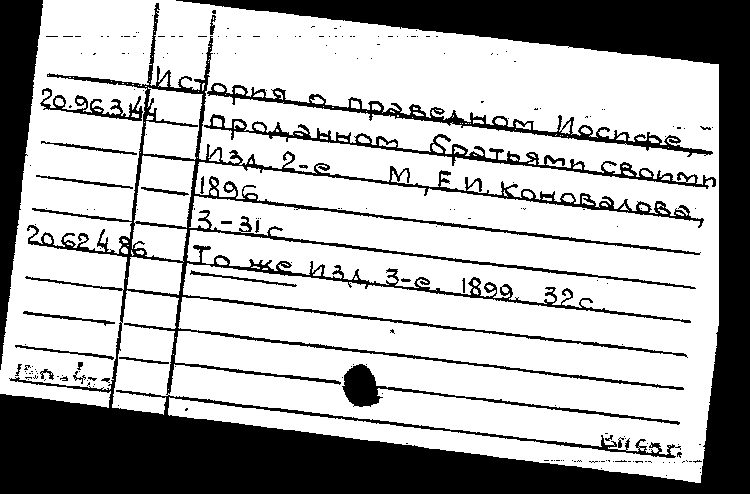 История о праведном Иосифе,
20.96.3.44 проданном братьями своими
Изд. 2-е. М., Е.И. Коновалова,
1896.
3.-31с
20.62.4.86. То же Изд. 3-е. 1899. 32с.